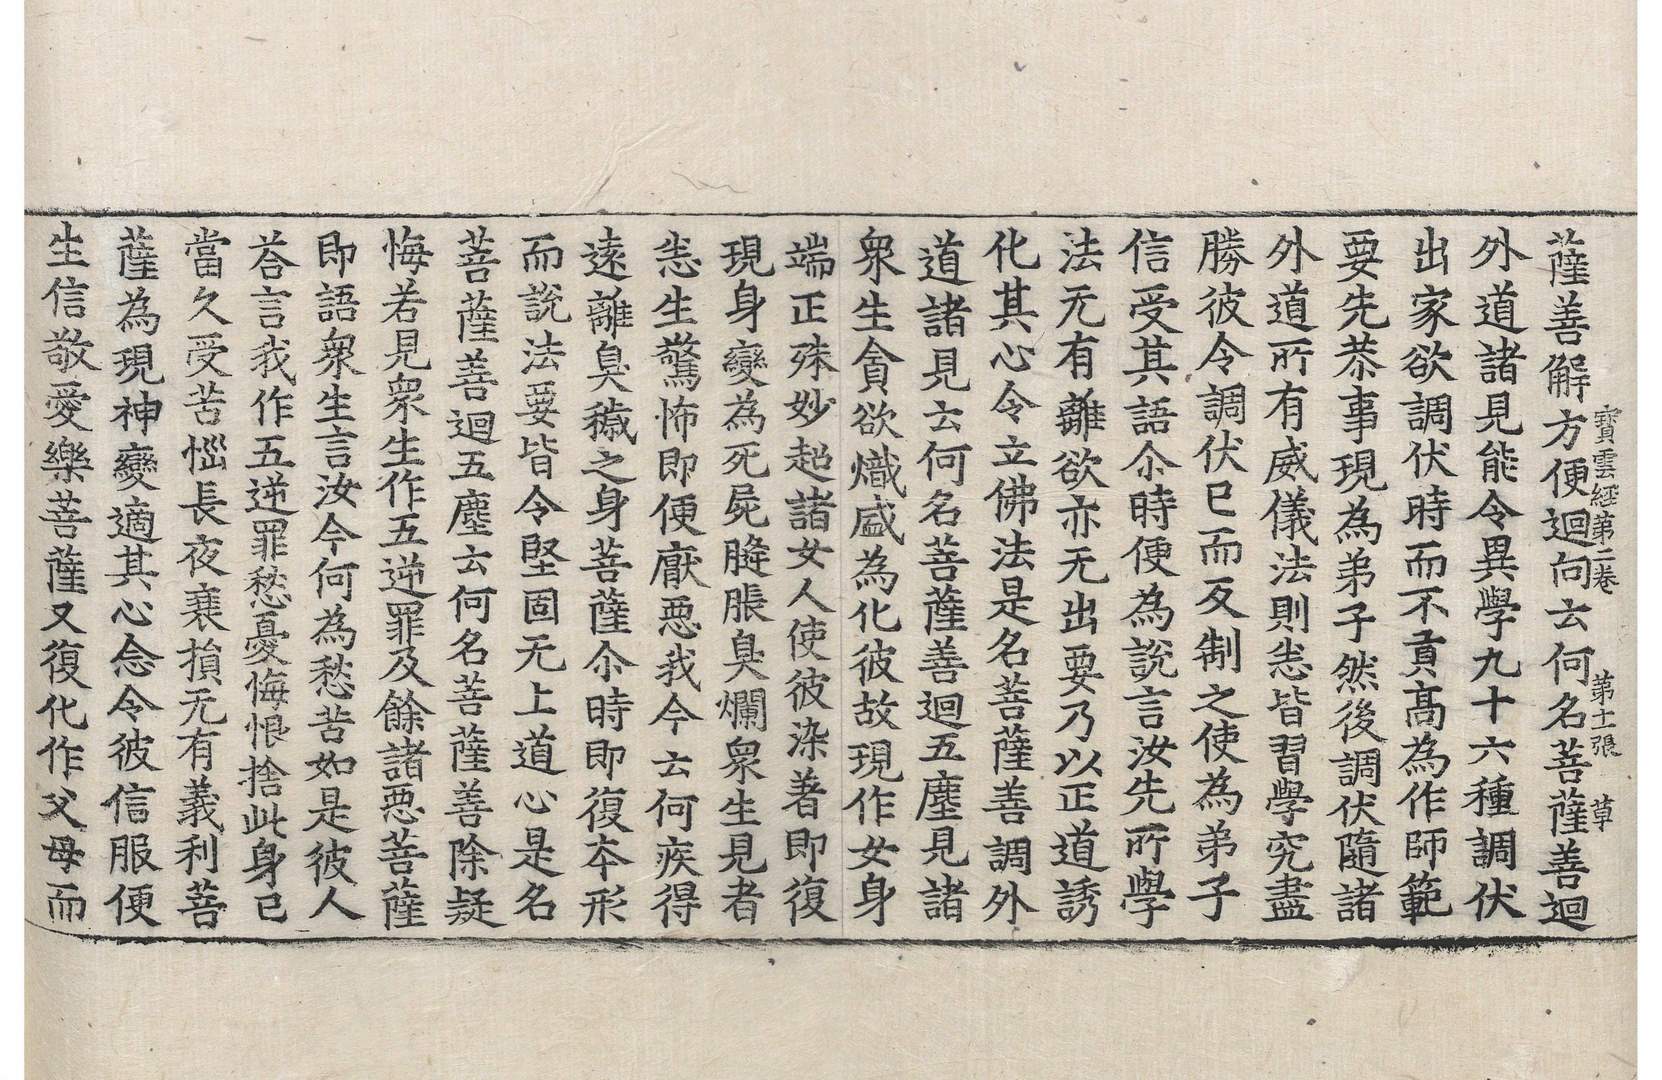 薩善解方便迴向云何名菩薩善迴
寶雲經第二卷　第十二張　草
外道諸見能令異學九十六種調伏
出家欲調伏時而不貢髙為作師範
要先恭事現為弟子然後調伏隨諸
外道所有威儀法則悉皆習學究盡
勝彼令調伏已而反制之使為弟子
信受其語尒時便為說言汝先所學
法无有離欲亦无出要乃以正道誘
化其心令立佛法是名菩薩善調外
道諸見云何名菩薩善迴五塵見諸
衆生貪欲熾盛為化彼故現作女身
端正殊妙超諸女人使彼染著即復
現身變為死屍膖脹臭爛衆生見者
悉生驚怖即便猒惡我今云何疾得
遠離臭穢之身菩薩尒時即復本形
而說法要皆令堅固无上道心是名
菩薩善迴五塵云何名菩薩善除疑
悔若見衆生作五逆罪及餘諸惡菩薩
即語衆生言汝今何為愁苦如是彼人
荅言我作五逆罪愁憂悔恨捨此身已
當久受苦惱長夜衰損无有義利菩
薩為現神變適其心念令彼信服便
生信敬愛樂菩薩又復化作父母而